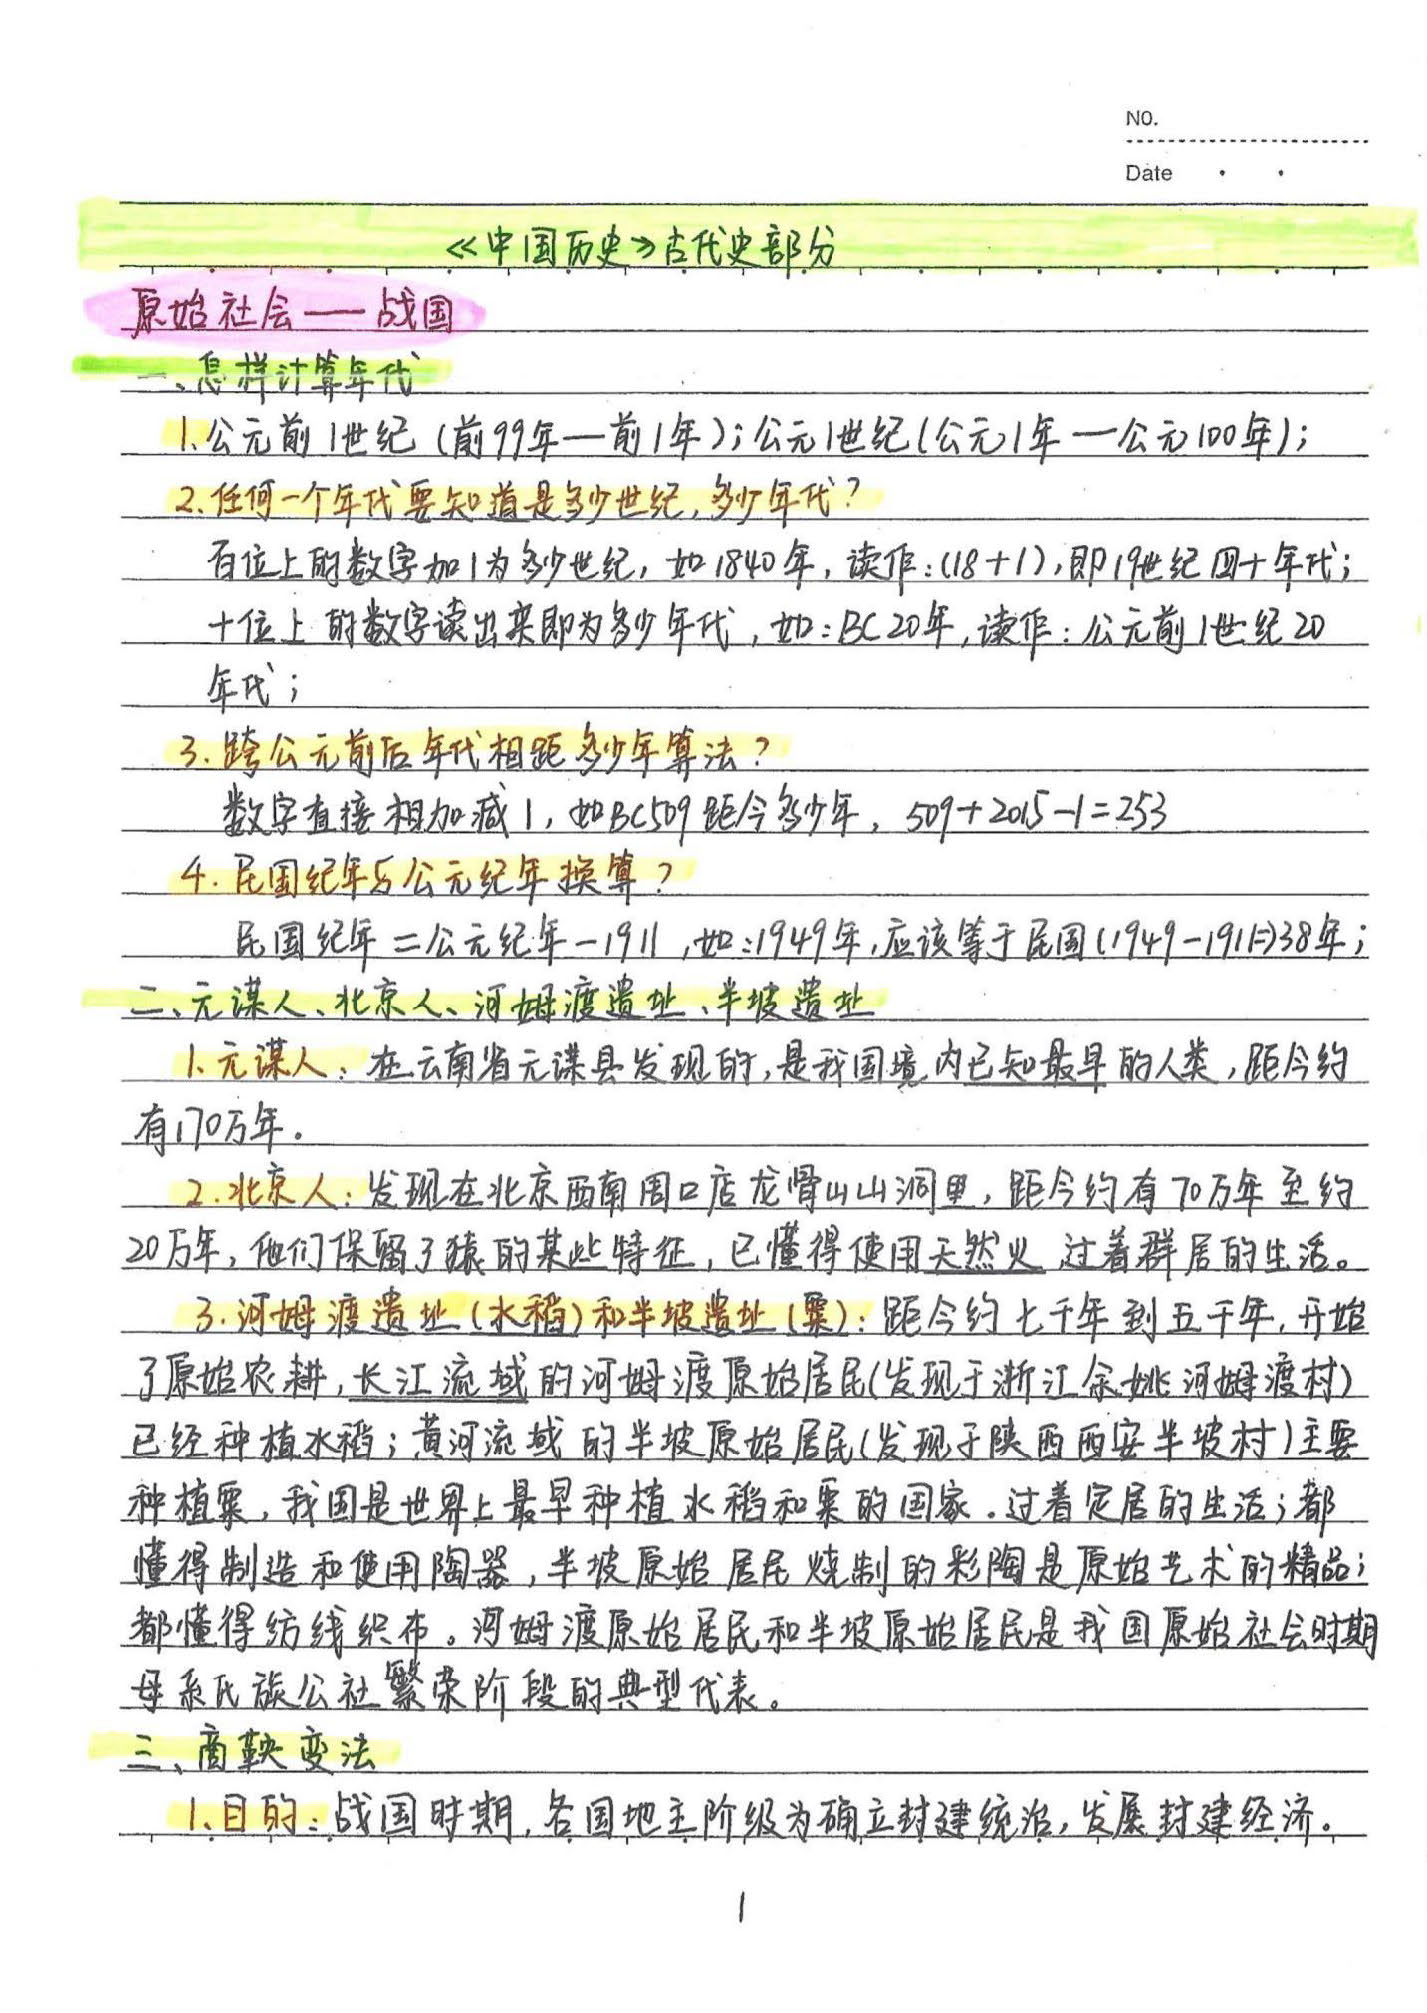 NO.
Date
《中国历史》古代史部分
原始社会——战国
一、怎样计算年代
1.公元前1世纪(前99年—前1年);公元1世纪(公元1年—公元100年);
2.任何一个年代要知道是多少世纪,多少年代?
百位上的数字加1为多少世纪,如1840年,读作:(18+1),即19世纪四十年代;
十位上的数字读出来即为多少年代,如:BC20年,读作:公元前1世纪20
年代;
3.跨公元前后年代相距多少年算法?
数字直接相加减1,如BC509距今多少年,509+2015-1=253
4.民国纪年与公元纪年换算?
民国纪年=公元纪年-1911,如:1949年,应该等于民国(1949-1911=)38年;
二、元谋人、北京人、河姆渡遗址、半坡遗址
1.元谋人:在云南省元谋县发现的,是我国境内已知最早的人类,距今约
有170万年。
2.北京人:发现在北京西南周口店龙骨山山洞里,距今约有70万年至约
20万年,他们保留了猿的某些特征,已懂得使用天然火,过着群居的生活。
3.河姆渡遗址(水稻)和半坡遗址(粟):距今约七千年到五千年,开始
了原始农耕,长江流域的河姆渡原始居民(发现于浙江余姚河姆渡村)
已经种植水稻;黄河流域的半坡原始居民(发现于陕西西安半坡村)主要
种植粟,我国是世界上最早种植水稻和粟的国家。过着定居的生活;都
懂得制造和使用陶器,半坡原始居民烧制的彩陶是原始艺术的精品;
都懂得纺线织布。河姆渡原始居民和半坡原始居民是我国原始社会时期
母系氏族公社繁荣阶段的典型代表。
三、商鞅变法
1.目的:战国时期,各国地主阶级为确立封建统治,发展封建经济。
1